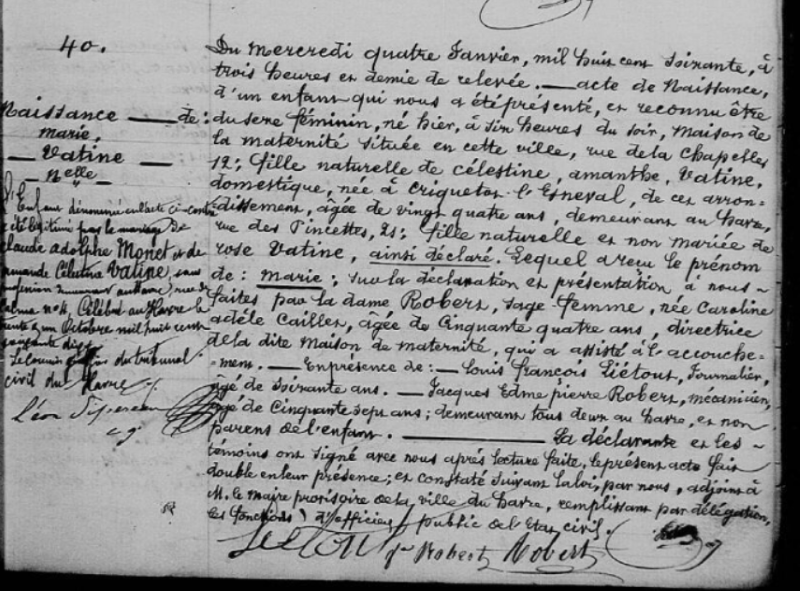 40.
Naissance — de:
marie,
— Vatine —
— Nelle —
L'Enfant dénommé en l'acte ci-contre
a été légitimé par le mariage de
Claude Adolphe Monet et de
Amanda Célestina Vatine, sans
profession demeurant au Havre, rue de
n° 4, Célébré au Havre le
trente un Octobre mil huit cent
soixante dix
Le Commis Greffier du tribunal
civil du Havre
Léon
Du Mercredi quatre Janvier, mil huit cent soixante, à
trois heures et demie de relevée. — acte de Naissance,
d'un enfant qui nous a été présenté, et reconnu être
du sexe féminin, né hier, à six heures du soir, maison de
la maternité située en cette ville, rue de la Chapelles
12; fille naturelle de célestine, amanthe, Vatine,
domestique, née à Criquetot-l'Esneval, de cet arron-
dissement, âgée de vingt quatre ans, demeurant au havre,
rue des Pincettes, 21; fille naturelle et non mariée de
rose Vatine, ainsi déclaré. Lequel a reçu le prénom
de: marie; sur la déclaration et présentation à nous-
faites par la dame Robert, sage-femme, née Caroline
adèle Cailler, âgée de Cinquante quatre ans, directrice
de la dite Maison de maternité, qui a assisté à l'accouche-
ment. — En présence de: — Louis François Liétout, Journalier,
âgé de soixante ans. — Jacques Edme pierre Robert, mécanicien,
âgé de Cinquante sept ans; demeurant tous deux au havre, et non
parens de l'enfant. — La déclarante et les -
témoins ont signé avec nous après lecture faite, le présent acte fait
double en leur présence; et constaté suivant la loi, par nous, adjoint à
M. le maire provisoire de la ville du havre, remplissant par délégation,
les fonctions d'officier public de l'Etat civil.
Robert Robert